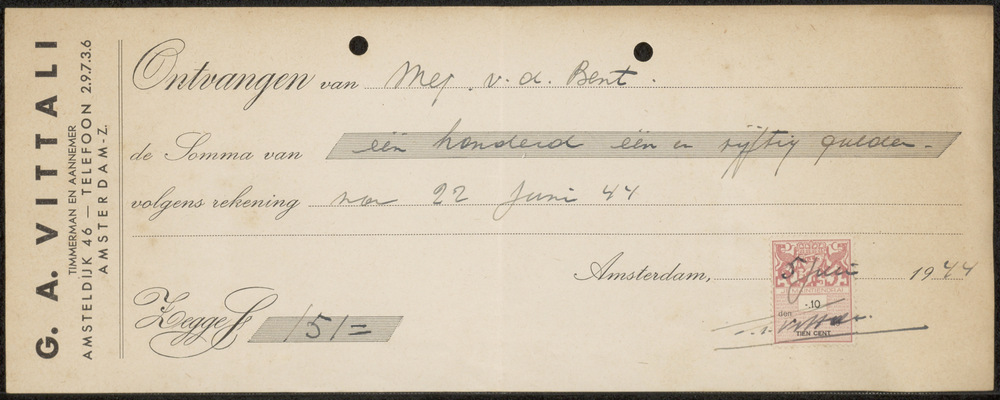 G. A. VITTALI
TIMMERMAN EN AANNEMER
AMSTELDIJK 46 — TELEFOON 2.9.7.3.6
AMSTERDAM-Z.
Ontvangen van Mej. v. d. Bent.
de Somma van één honderd één en vijftig gulden.
volgens rekening van 22 Juni 44
Amsterdam, 5 Juni 1944
-.10
den
TIEN CENT
Zegge f 151=